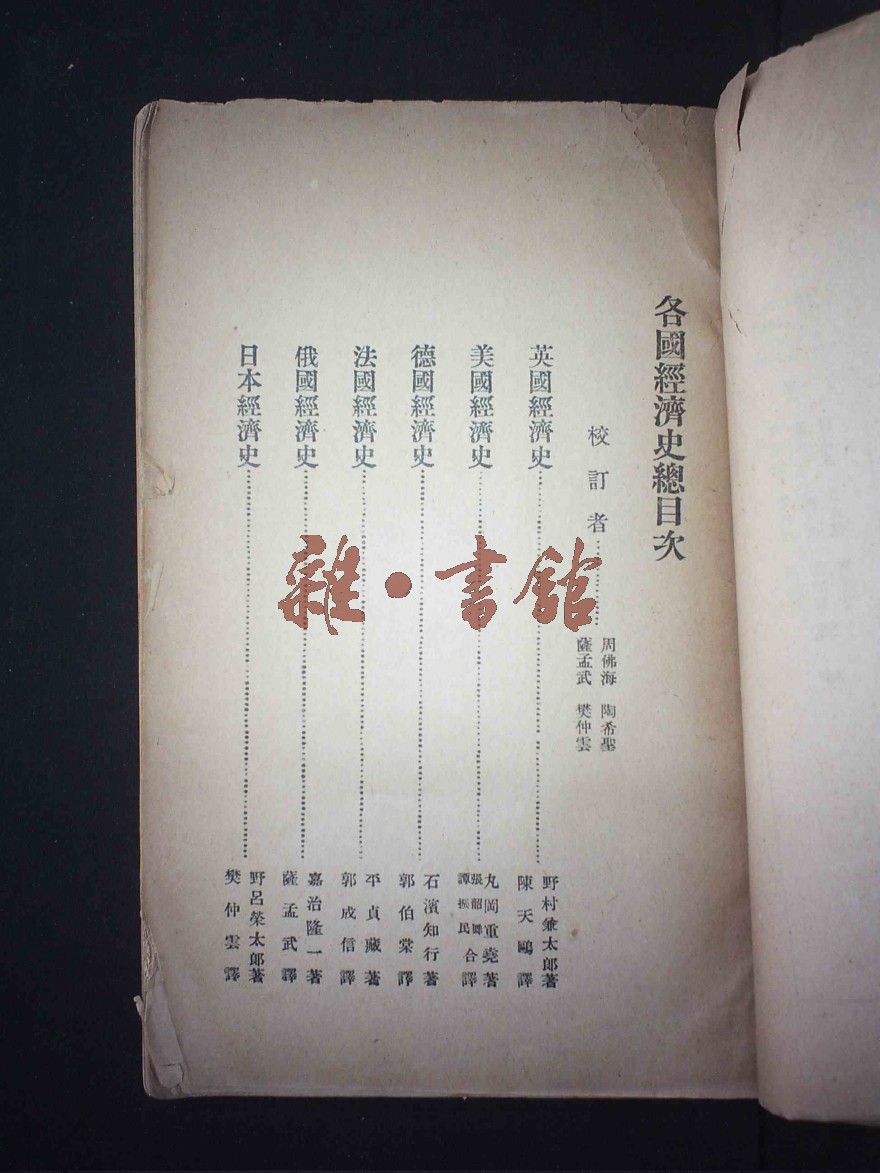 各國經濟史總目次
校訂者
周佛海 陶希聖
薩孟武 樊仲雲
英國經濟史
野村兼太郎著
陳天鷗譯
美國經濟史
丸岡重堯著
張韶舞
譚振民
合譯
德國經濟史
石濱知行著
郭伯棠譯
法國經濟史
平貞藏著
郭成信譯
俄國經濟史
嘉治隆一著
薩孟武譯
日本經濟史
野呂榮太郎著
樊仲雲譯
雜·書館